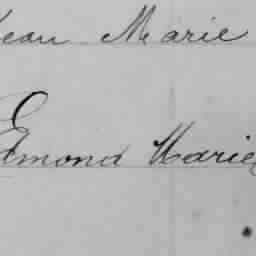 Jean Marie
Edmond Marie